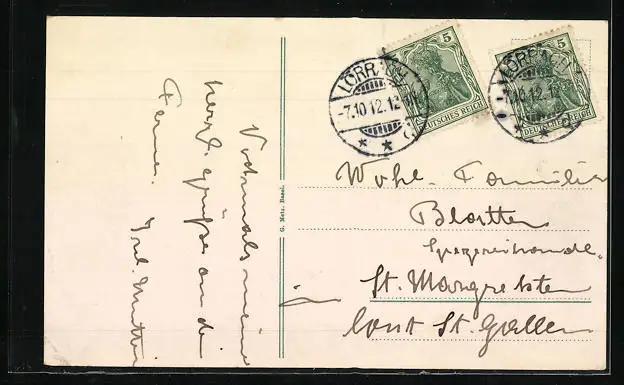 Vielmals meine
herzl. Grüße an die
Ferne. Frl. Mutter
G. Metz, Basel.
LÖRRACH
-7.10.12.12
5
DEUTSCHES REICH
LÖRRACH
12.12
5
DEUTSCHES REICH
Wohl. Familie
Blatter
Spezereihandl.
St. Margrethen
Cant St. Gallen